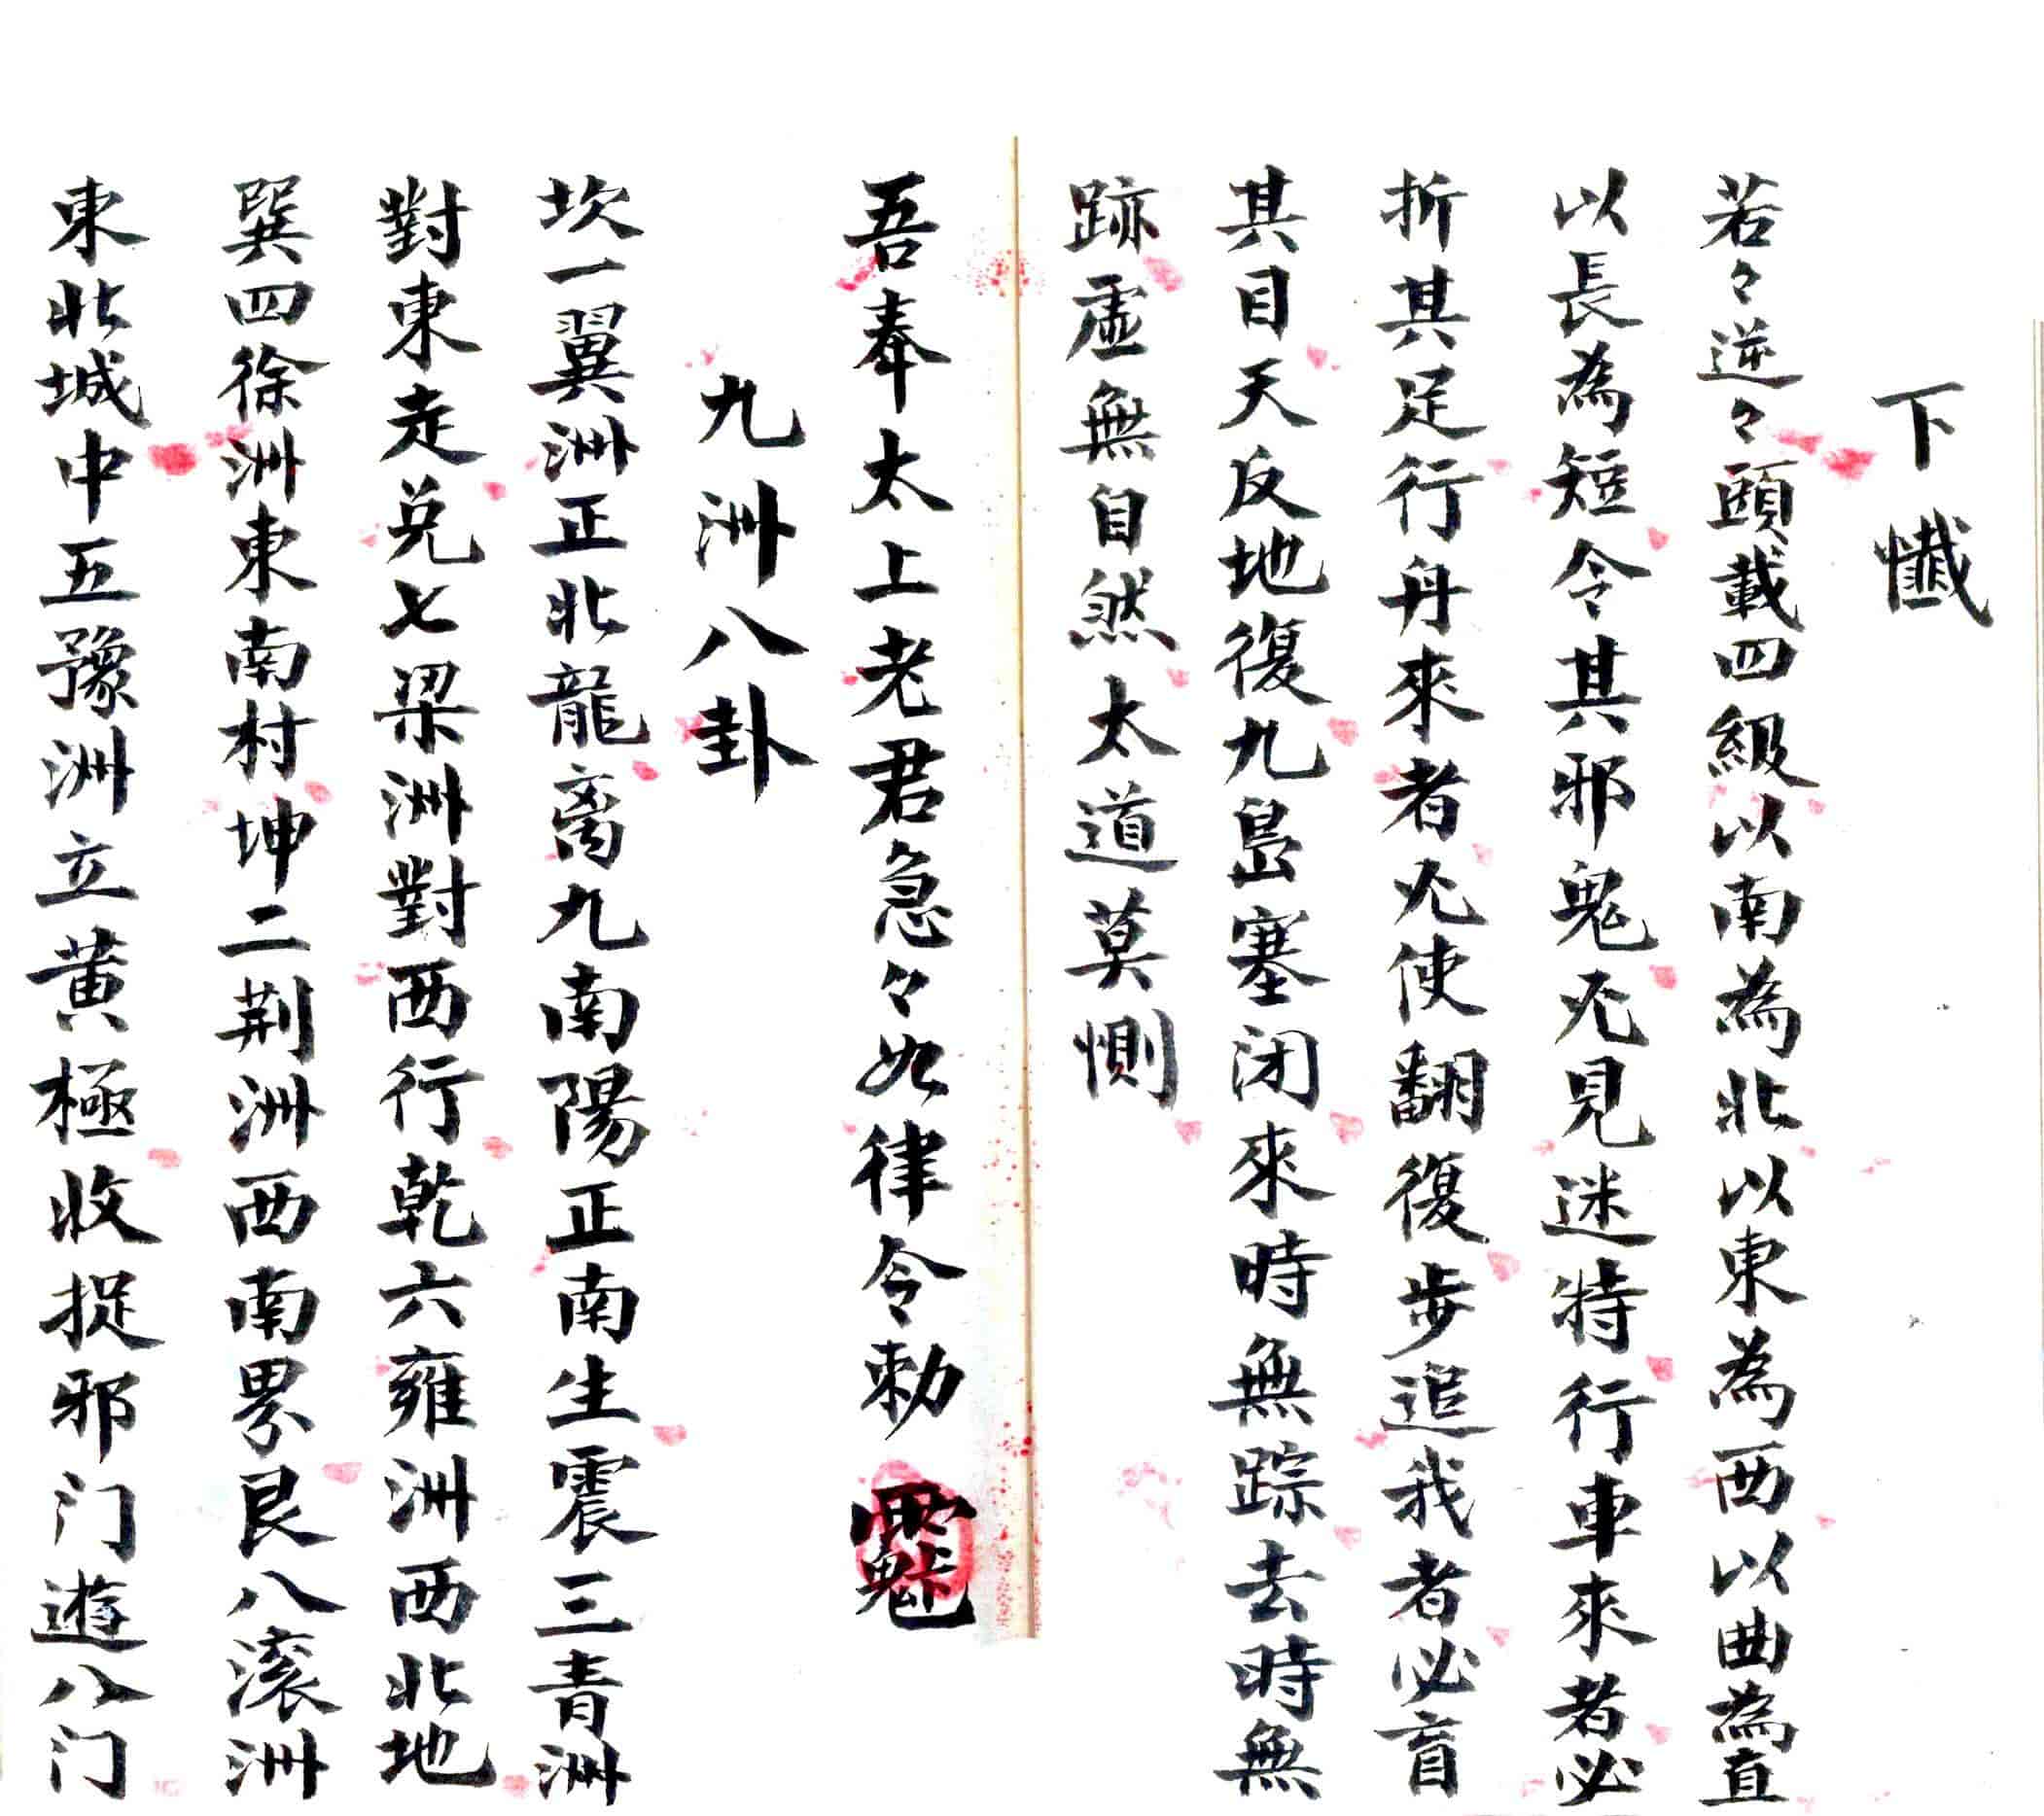 下懺
若々逆々頭載四級以南為北以東為西以曲為直
以長為短令其邪鬼旡見迷特行車來者必
折其足行舟來者旡使翻復步追我者必盲
其目天反地復九島塞闭來時無踪去時無
跡虛無自然太道莫惻
吾奉太上老君急々如律令勅
九洲八卦
坎一翼洲正北龍离九南陽正南生震三青洲
對東走兑七梁洲對西行乾六雍洲西北地
巽四徐洲東南村坤二荆洲西南界艮八滚洲
東北城中五豫洲立黄極收捉邪门遊八门